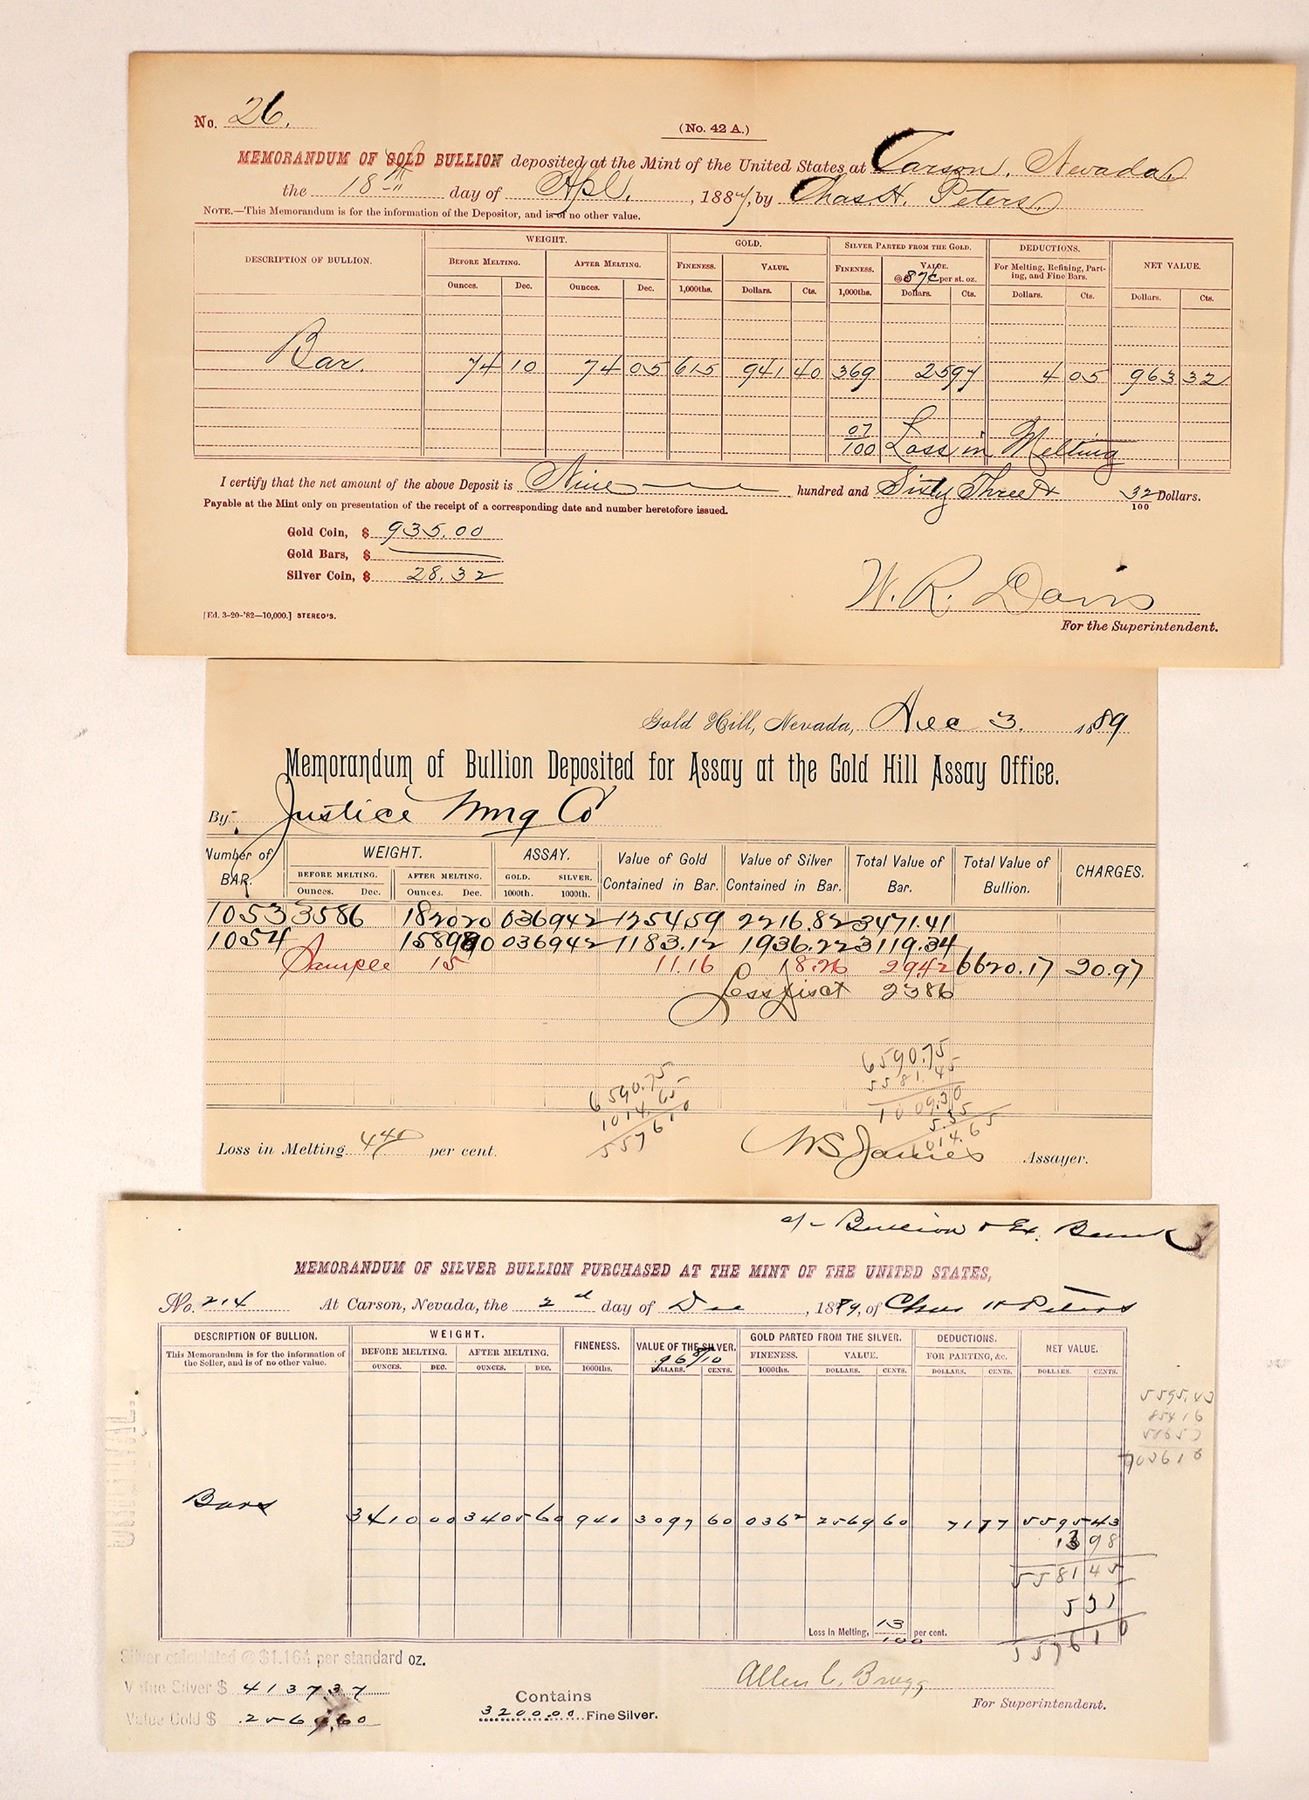 No. 26.
(No. 42 A.)
MEMORANDUM OF GOLD BULLION deposited at the Mint of the United States at Carson, Nevada,
the 18th day of Apl. , 1887, by Chas H. Peters.
NOTE.—This Memorandum is for the information of the Depositor, and is of no other value.
DESCRIPTION OF BULLION. WEIGHT. GOLD. SILVER PARTED FROM THE GOLD. DEDUCTIONS. NET VALUE.
BEFORE MELTING. AFTER MELTING. FINENESS. VALUE. FINENESS. VALUE. @ 87¢ per st. oz. For Melting, Refining, Parting, and Fine Bars.
Ounces. Dec. Ounces. Dec. 1,000ths. Dollars. Cts. 1,000ths. Dollars. Cts. Dollars. Cts. Dollars. Cts.
Bar. 74 10 74 05 615 941 40 369 25 97 4 05 963 32
07/100 Loss in Melting
I certify that the net amount of the above Deposit is Nine hundred and Sixty Three & 32/100 Dollars.
Payable at the Mint only on presentation of the receipt of a corresponding date and number heretofore issued.
Gold Coin, $ 935.00
Gold Bars, $
Silver Coin, $ 28.32
W. R. Davis
For the Superintendent.
[Ed. 3-20-'82—10,000.] STEREO'S.
Gold Hill, Nevada, Dec 3. 1889
Memorandum of Bullion Deposited for Assay at the Gold Hill Assay Office.
By Justice Mng Co
Number of BAR. WEIGHT. ASSAY. Value of Gold Contained in Bar. Value of Silver Contained in Bar. Total Value of Bar. Total Value of Bullion. CHARGES.
BEFORE MELTING. AFTER MELTING. GOLD. SILVER.
Ounces. Dec. Ounces. Dec. 1000th. 1000th.
1053 3586 1820 20 036 942 1254.59 2216.82 3471.41
1054 1589 80 036 942 1183.12 1936.22 3119.34
Sample 15 11.16 18.26 29.42 6620.17 20.97
Less Disct 23 86
6590.75
5581.45
1009.30
5.35
1014.65
6590.75
1014.65
5576 10
Loss in Melting per cent.
W S James Assayer.
a/c Bullion & Ex. Bank
MEMORANDUM OF SILVER BULLION PURCHASED AT THE MINT OF THE UNITED STATES,
No. 214 At Carson, Nevada, the 2d day of Dec , 1889, of Chas H Peters
DESCRIPTION OF BULLION. WEIGHT. FINENESS. VALUE OF THE SILVER. GOLD PARTED FROM THE SILVER. DEDUCTIONS. NET VALUE.
This Memorandum is for the information of the Seller, and is of no other value.
BEFORE MELTING. AFTER MELTING. 96 8/10 FINENESS. VALUE. FOR PARTING, &c.
OUNCES. DEC. OUNCES. DEC. 1000ths. DOLLARS. CENTS. 1000ths. DOLLARS. CENTS. DOLLARS. CENTS. DOLLARS. CENTS.
5595.43
854 16
Bars 3410 00 3405 60 940 3097 60 036 2 2569 60 71 77 5595 43
13 98
5581 45
5 31
5576 10
Loss in Melting, 13/100 per cent.
Silver calculated @ $1.164 per standard oz.
Value Silver $ 4137 37
Value Gold $ 2569.60
Contains
3200.00 Fine Silver.
Allen C. Bragg
For Superintendent.